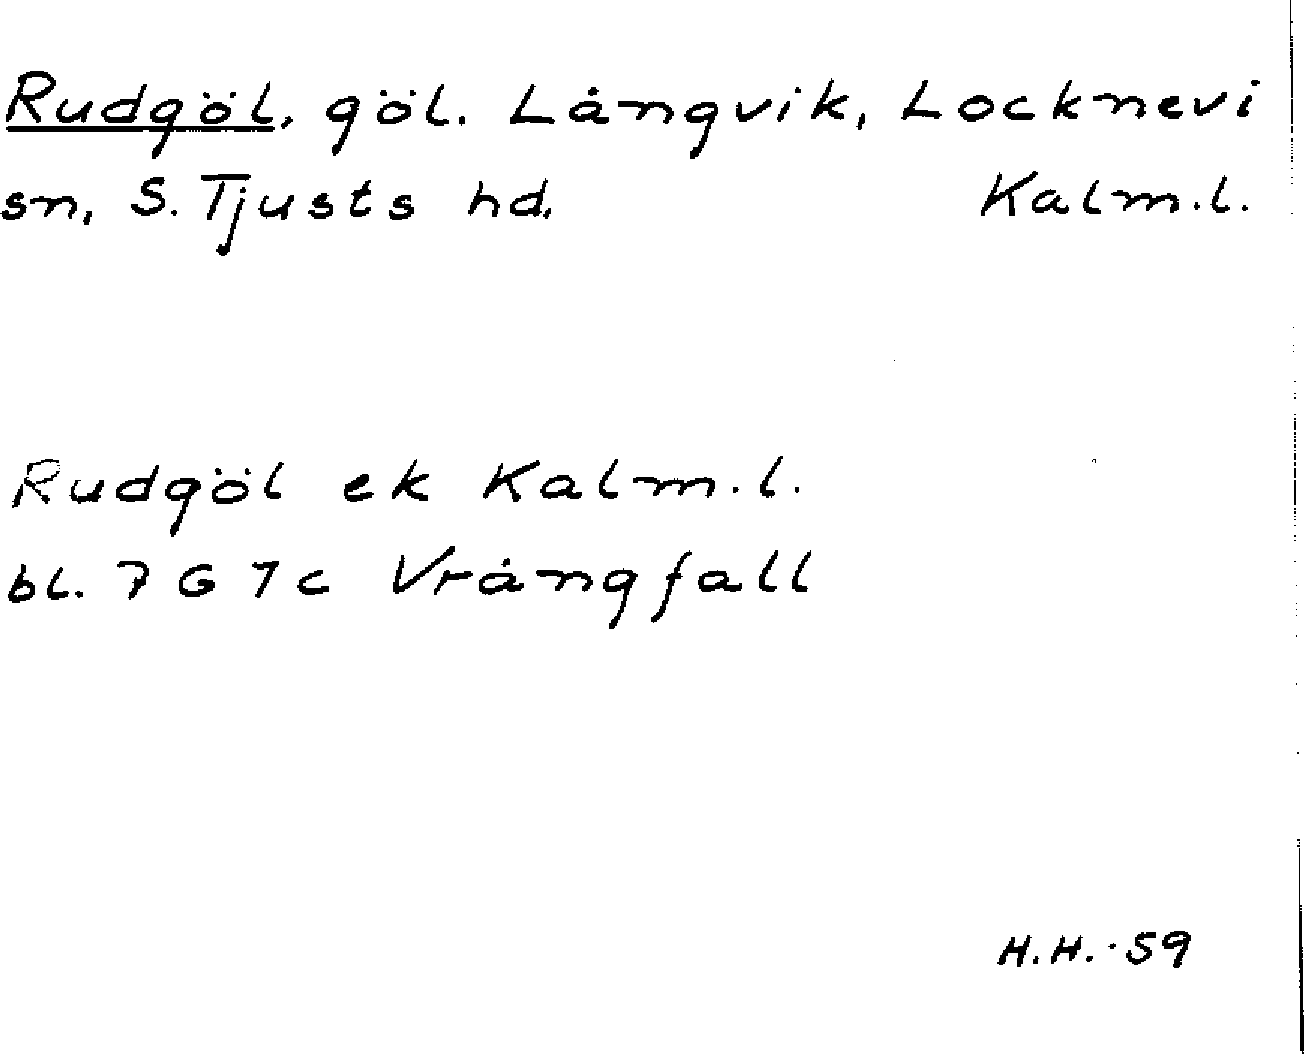 Rudgöl, göl. Långvik, Locknevi
sn, S. Tjusts hd. Kalm.l.
Rudgöl ek Kalm.l.
bl. 7 G 7 c Vrångfall
H.H. -59